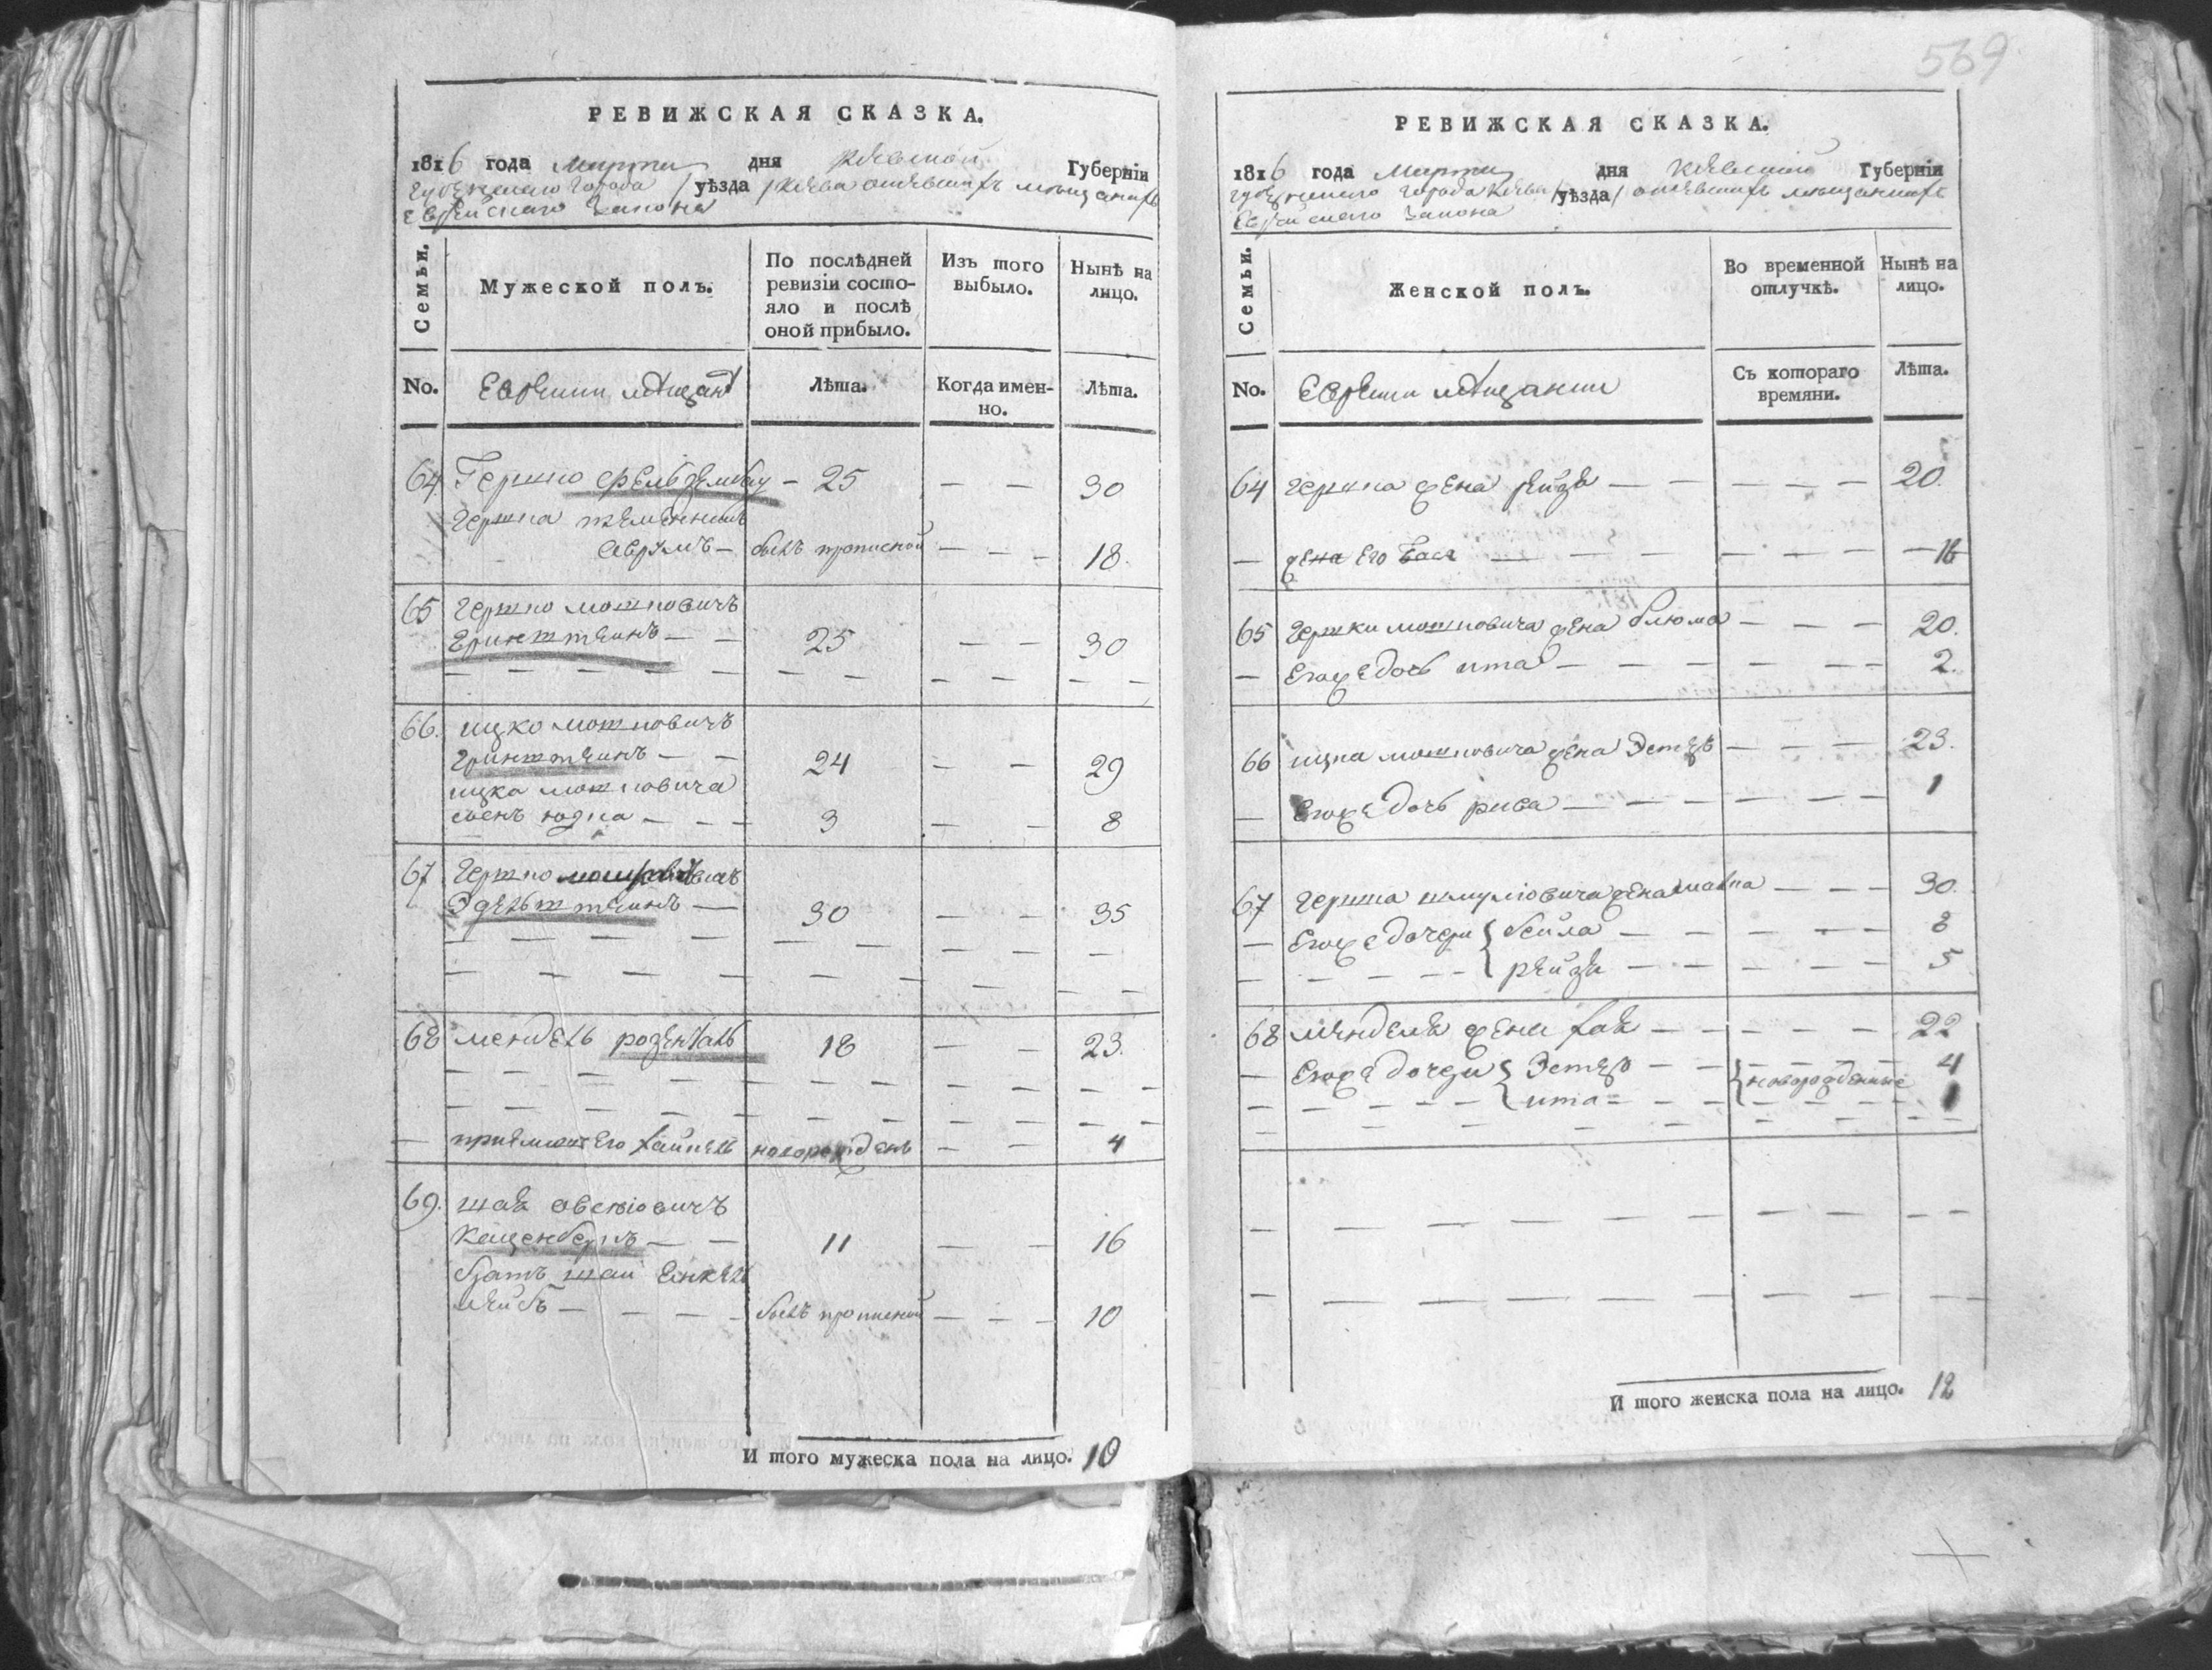 РЕВИЖСКАЯ СКАЗКА.
1816 года марта дня Киевской Губерніи
губернскаго города / уѣзда / Киева
еврейскаго закона
Семьи.
Мужеской полъ.
По послѣдней ревизіи состо-
яло и послѣ
оной прибыло.
Изъ того выбыло.
Нынѣ на лицо.
No.
Еврейи мѣщанѣ
Лѣта.
Когда имен-
но.
Лѣта.
64 Гершко Фельдзембау — 25 — — 30
Гершка племянникъ
Аврумъ — былъ прописной — — — 18.
65 Гершко мошковичъ
Гринштеинъ — — 25 — — 30
66. ицко мошковичъ
Гринштеинъ — — 24 — — 29
ицка мошковича
сынъ юдка — — — 3 — — 8
67 Гершко
Эдельштеинъ — 30 — — 35
68 мендель розенталь 18 — — 23.
— приемышъ его хаимъ новорожденъ — — 4
69. шая овсеіовичъ
Каценбергъ — — 11 — — 16
братъ шаи Енкель
лейбъ — — — — былъ прописной — — — 10
И того мужеска пола на лицо. 10
569
РЕВИЖСКАЯ СКАЗКА.
1816 года марта дня Киевской Губерніи
губернскаго города Киева / уѣзда /
еврейскаго закона
Семьи.
Женской полъ.
Во временной
отлучкѣ.
Нынѣ на
лицо.
No.
Еврейи мѣщанки
Съ котораго
времяни.
Лѣта.
64 гершка жена рейзя — — — — — 20.
— жена его Бася — — — — — — 18
65 Гершки мошковича жена блюма — — — 20.
— Егоже дочь ита — — — — — — 2.
66 ицка мошковича жена Эстеръ — — — 23.
— Егоже дочь рива — — — — — — 1
67 гершка шмулiовича жена малка — — — 30.
— Егоже дочери { бейла — — — — — — 8
— — — — — { рейзя — — — — — 5
68 менделя жена хая — — — — — 22
— Егоже дочери { Эстеръ — — { новорожденные 4
— — — — — { ита — — — 1
И того женска пола на лицо. 12